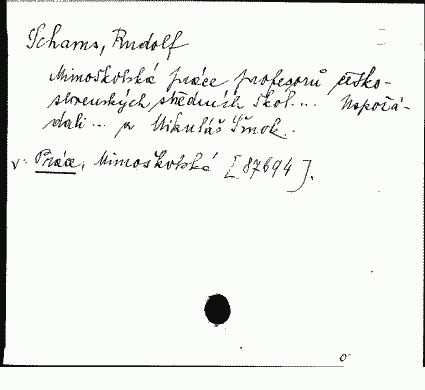 Schams, Rudolf
Mimoškolská práce profesorů česko-
slovenských středních škol... Uspořá-
dali... a Mikuláš Šmok.
v: Práce, Mimoškolská [87694].